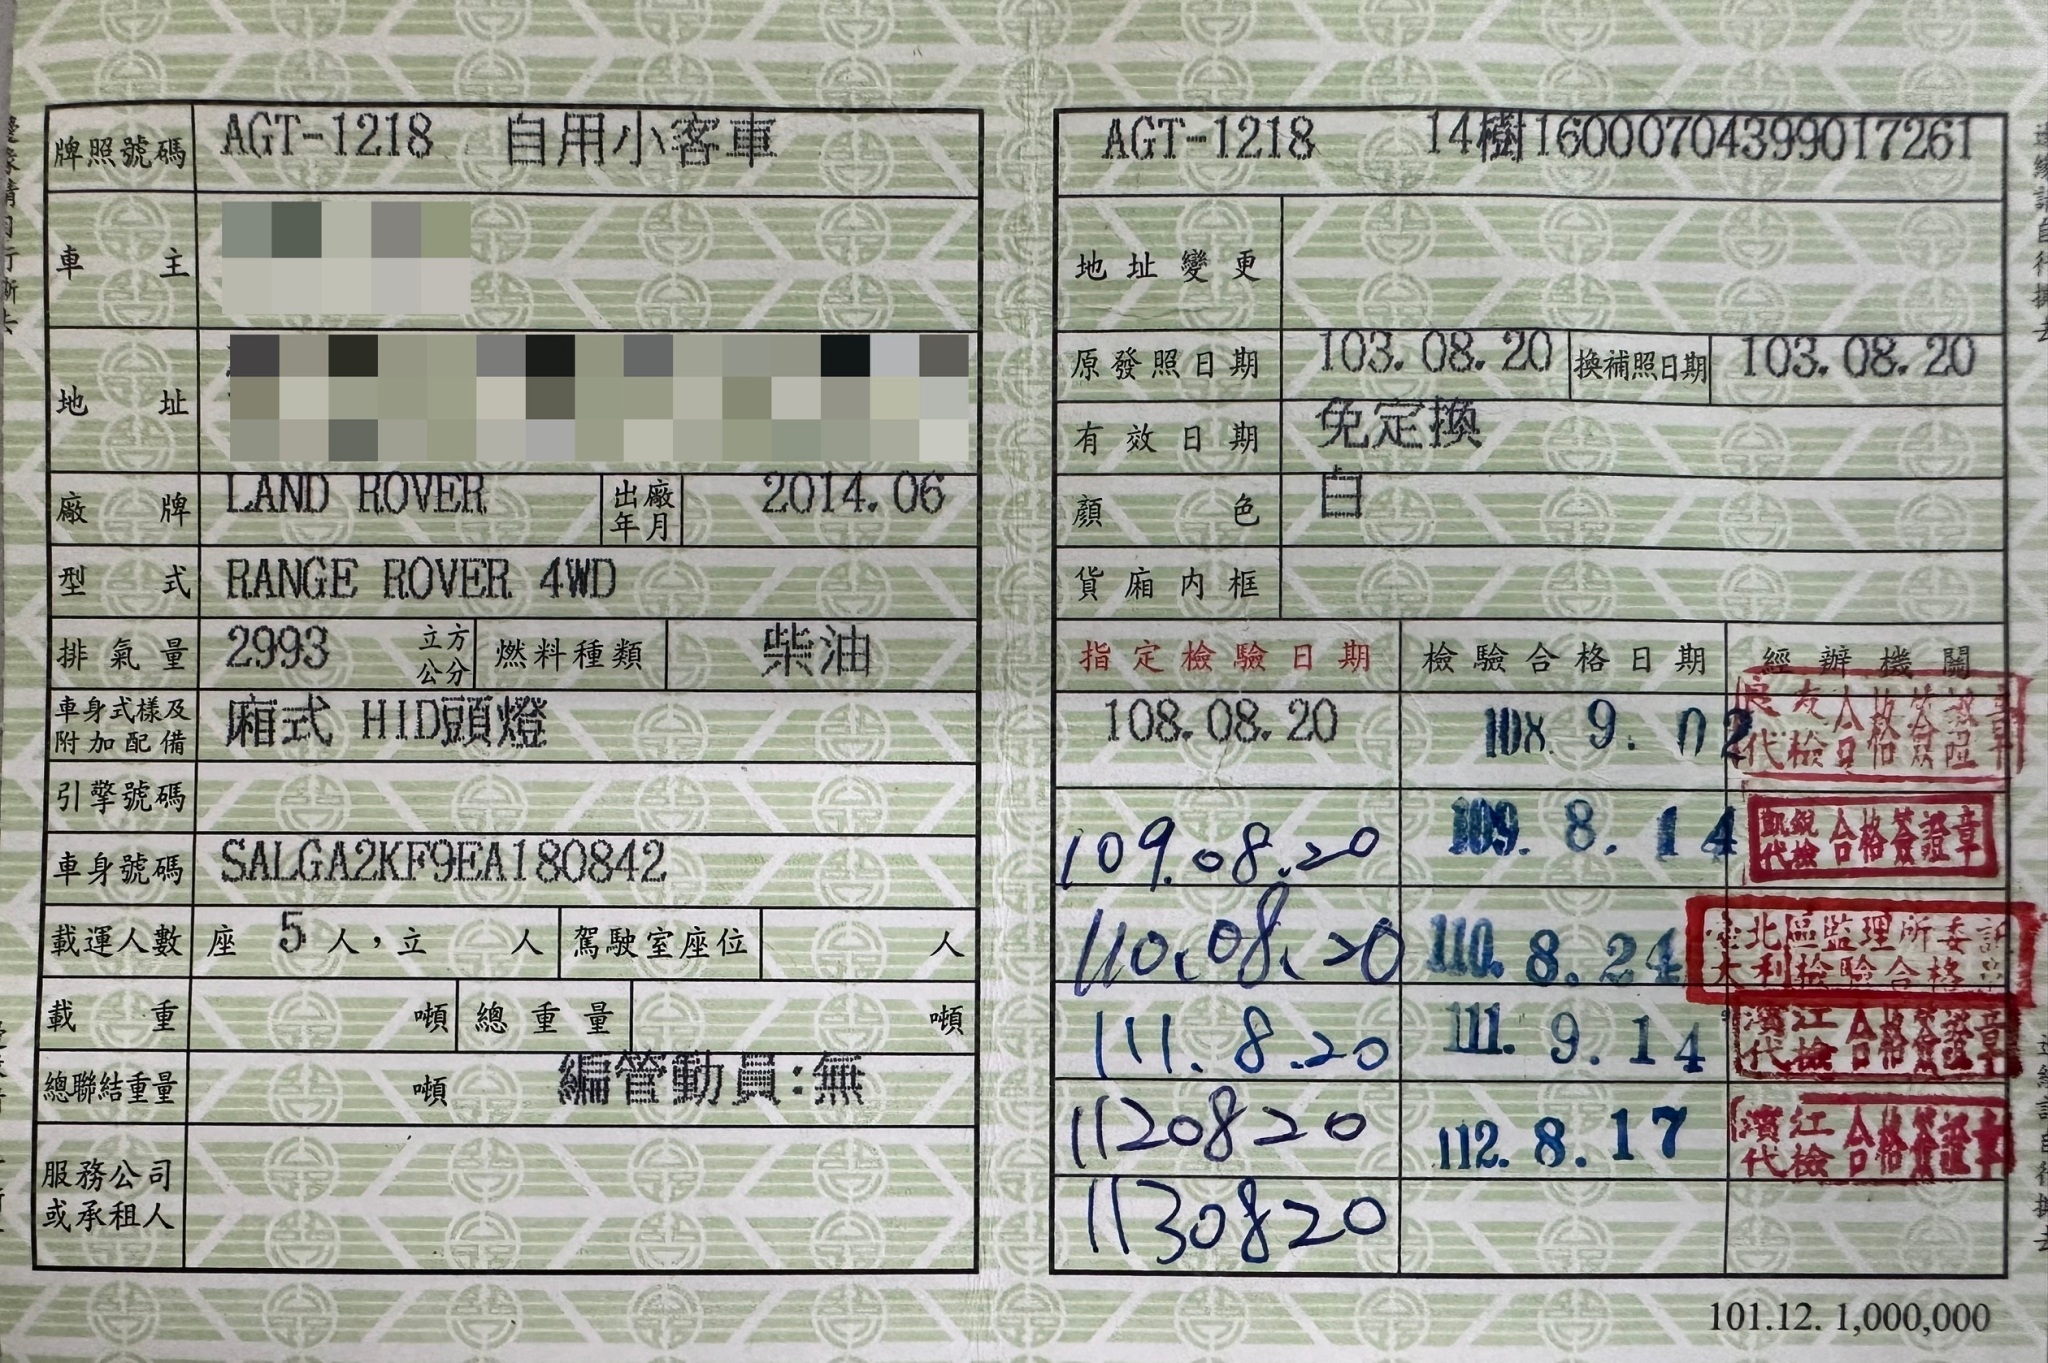 牌照號碼 AGT-1218 自用小客車
車主
地址
廠牌 LAND ROVER 出廠年月 2014.06
型式 RANGE ROVER 4WD
排氣量 2993 立方公分 燃料種類 柴油
車身式樣及附加配備 廂式 HID頭燈
引擎號碼
車身號碼 SALGA2KF9EA180842
載運人數 座 5 人,立 人 駕駛室座位 人
載重 噸 總重量 噸
總聯結重量 噸 編管動員:無
服務公司或承租人
AGT-1218 14樹16000704399017261
地址變更
原發照日期 103.08.20 換補照日期 103.08.20
有效日期 免定換
顏色 白
貨廂內框
指定檢驗日期 檢驗合格日期 經辦機關
108.08.20 108. 9. 02 良友代檢合格簽證章
109.08.20 109. 8. 14 凱銳代檢合格簽證章
110.08.20 110. 8. 24 臺北區監理所委託大利檢驗合格
111.8.20 111. 9. 14 濱江代檢合格簽證章
1120820 112. 8. 17 濱江代檢合格簽證章
1130820
101.12. 1,000,000